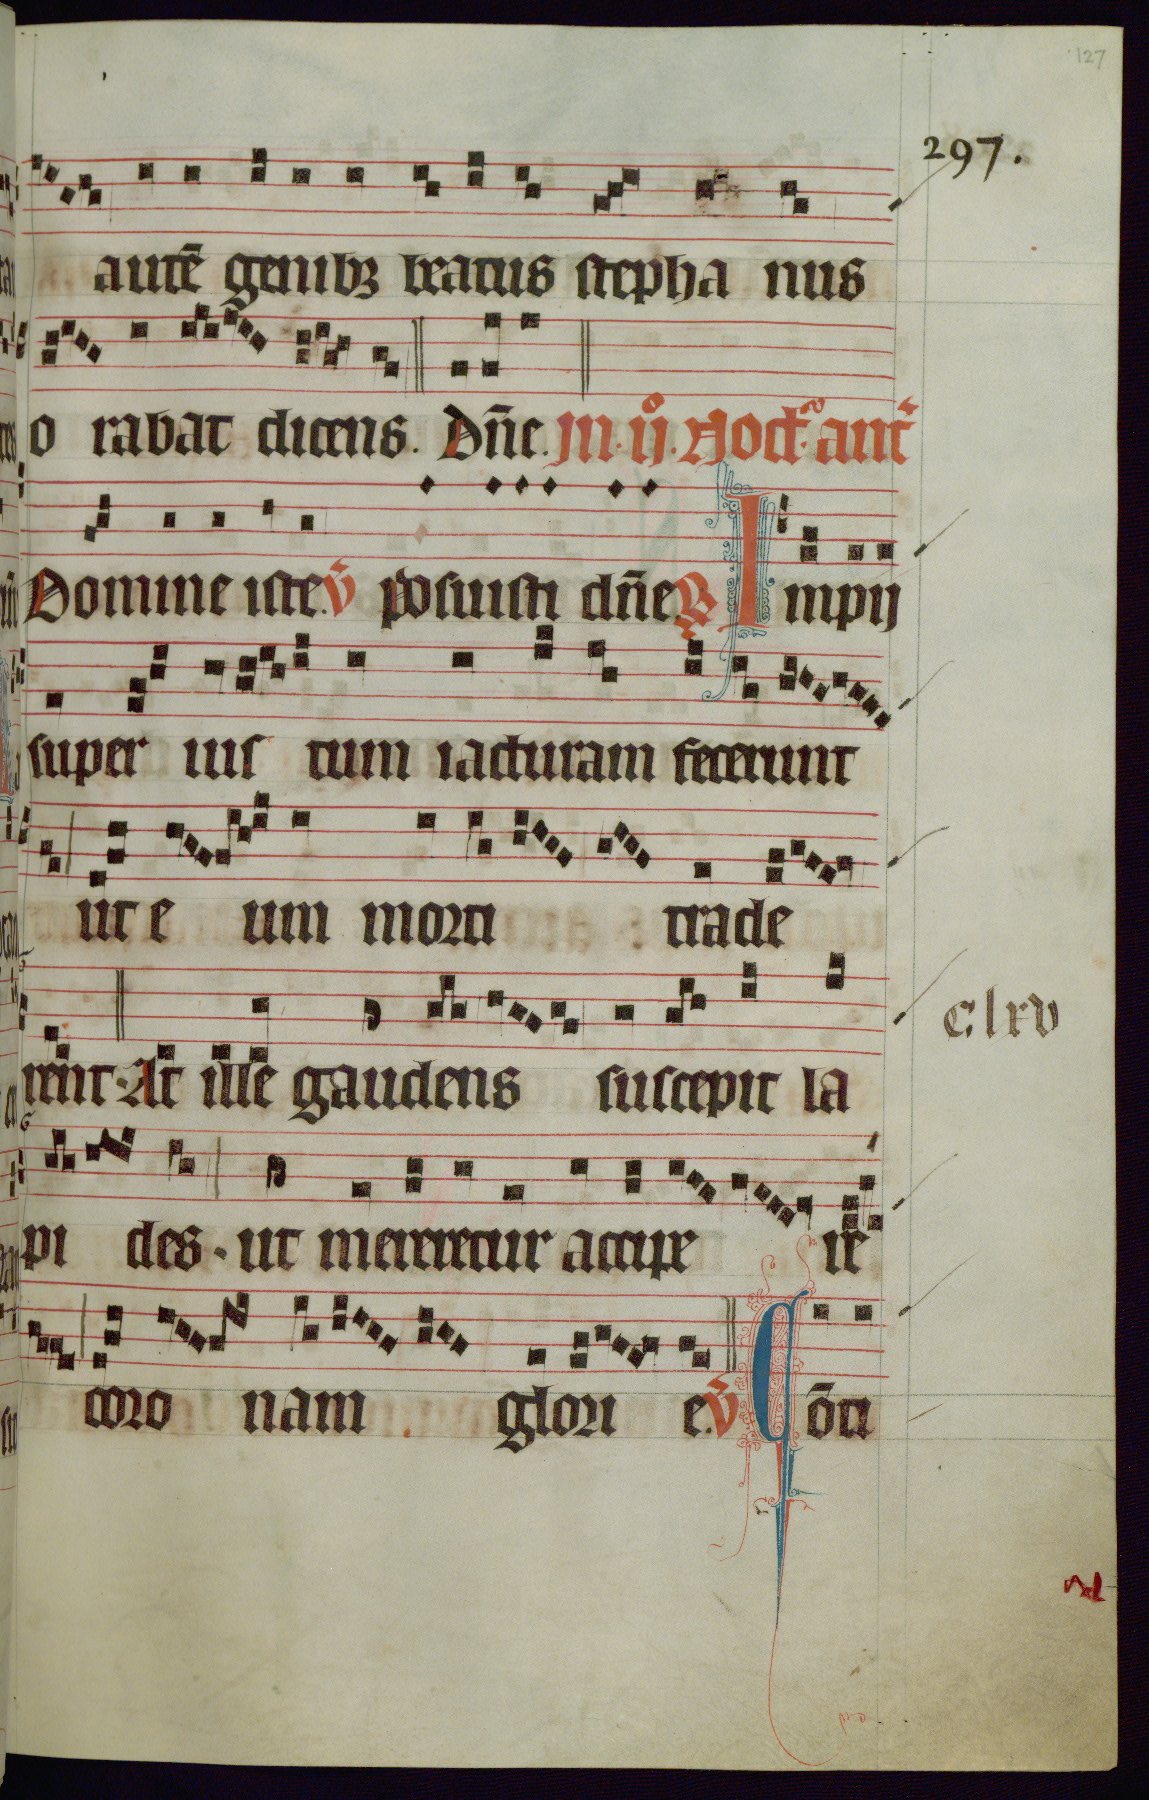 127
297.
autē genibꝫ beatus stepha nus
o rabat dicens. Dn̄e. In. ij. Noct. ant
Domine iste. v̄ Posuisti dn̄e. R Impij
super ius tum iacturam fecerunt
ut e um morti trade
rent. At ille gaudens suscepit la
clxv
pi des. ut mereretur accipe re
coro nam glori e. v̄ Cōti